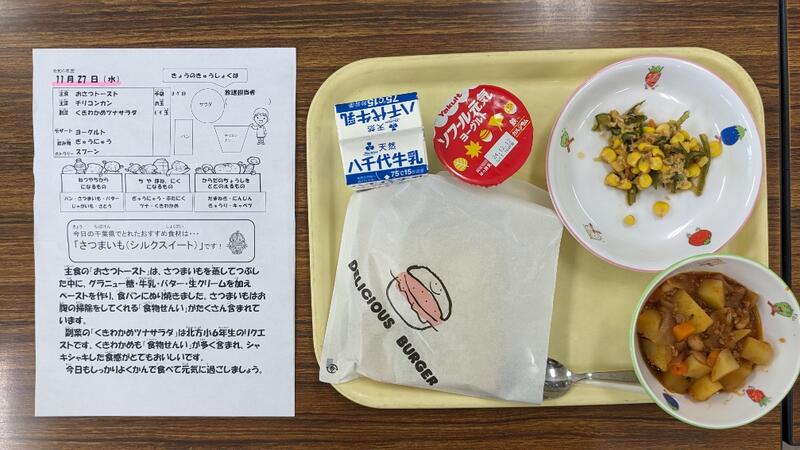 11月27日（水）
きょうのきゅうしょくは
主食 おさつトースト
主菜 チリコンカン
副菜 くきわかめツナサラダ
手袋
お玉
放送担当者
サラダ
パン
デザート ヨーグルト
飲み物 ぎゅうにゅう
カトラリー スプーン
ねつやちから
になるもの
ち や ほね、にく
になるもの
からだのちょうしを
ととのえるもの
パン・さつまいも・バター
じゃがいも・さとう
ぎゅうにゅう・ぶたにく
ツナ・くきわかめ
たまねぎ・にんじん
きゅうり・キャベツ
今日の千葉県でとれたおすすめ食材は・・・
「さつまいも（シルクスイート）」です！
主食の「おさつトースト」は、さつまいもを蒸してつぶし
た中に、グラニュー糖・牛乳・バター・生クリームを加え
ペーストを作り、食パンにぬり焼きました。さつまいもはお
腹の掃除をしてくれる「食物せんい」がたくさん含まれて
います。
副菜の「くきわかめツナサラダ」は北方小6年生のリクエ
ストです。くきわかめも「食物せんい」が多く含まれ、シャ
キシャキした食感がとてもおいしいです。
今日もしっかりよくかんで食べて元気に過ごしましょう。
75℃15分殺菌
八千代牛乳
天然
天然
八千代牛乳
75℃15分
Yakult
ソフール元気
ヨーグルト
DELICIOUS BURGER